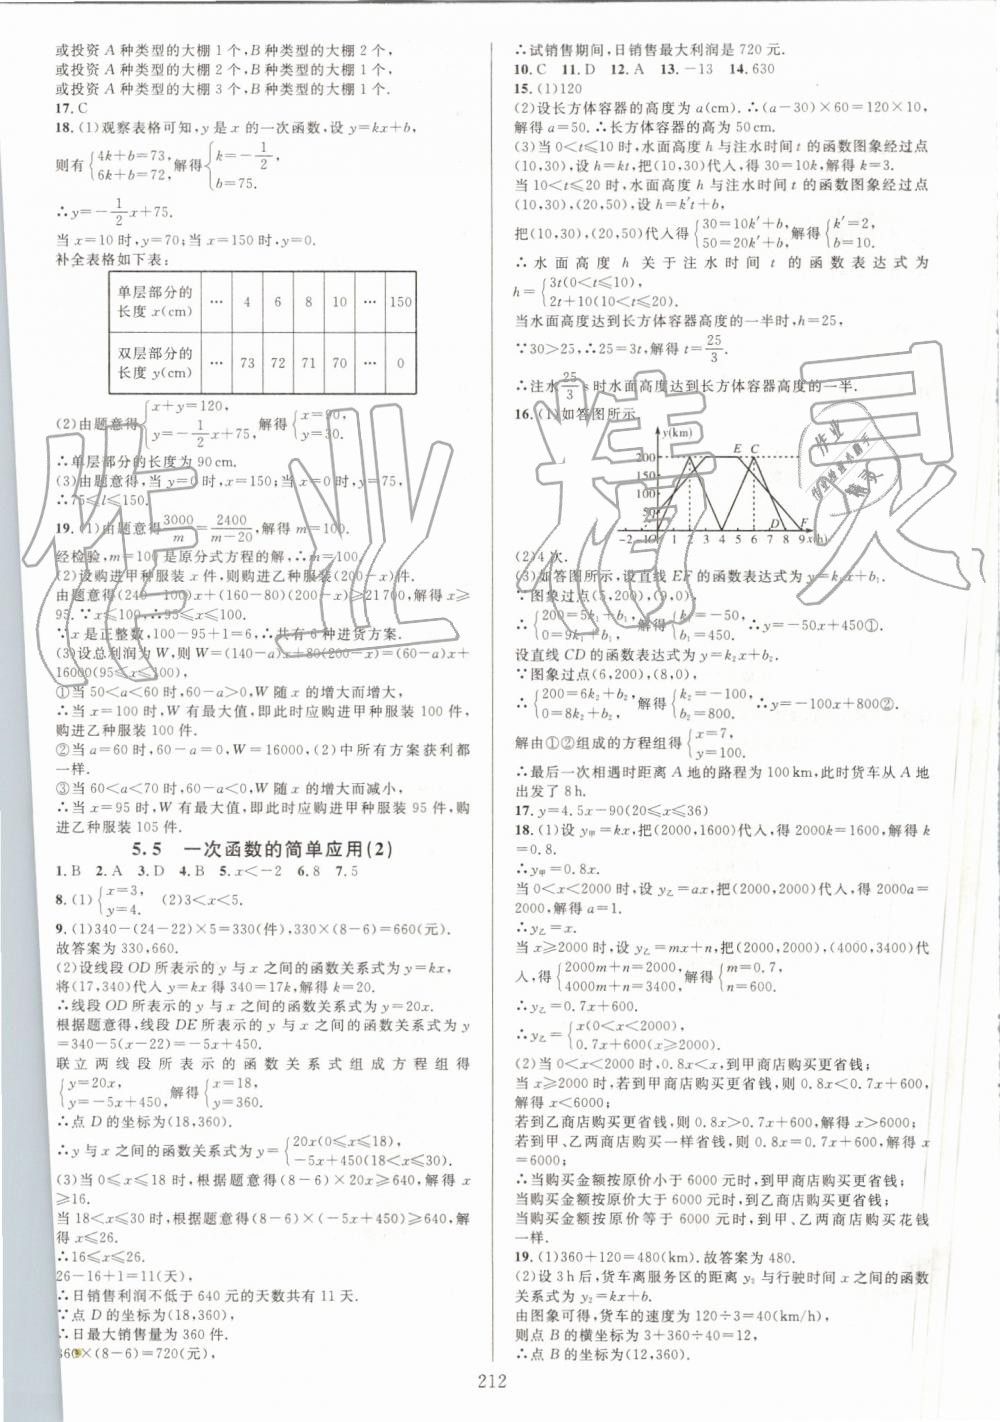 或投资 A 种类型的大棚 1 个,B 种类型的大棚 2 个,
或投资 A 种类型的大棚 2 个,B 种类型的大棚 2 个,
或投资 A 种类型的大棚 3 个,B 种类型的大棚 1 个.
17.C
18.(1)观察表格可知,y 是 x 的一次函数,设 y=kx+b,
则有{4k+b=73, 6k+b=72, 解得{k=-1/2, b=75.
∴y=-1/2x+75.
当 x=10 时,y=70;当 x=150 时,y=0.
补全表格如下表:
单层部分的长度 x(cm) … 4 6 8 10 … 150
双层部分的长度 y(cm) … 73 72 71 70 … 0
(2)由题意得{x+y=120, y=-1/2x+75, 解得{x=90, y=30.
∴单层部分的长度为 90 cm.
(3)由题意得,当 y=0 时,x=150,当 x=0 时,y=75,
∴75≤l≤150.
19.(1)由题意得3000/m=2400/(m-20),解得 m=100.
经检验,m=100 是原分式方程的解,∴m=100.
(2)设购进甲种服装 x 件,则购进乙种服装(200-x)件.
由题意得(240-100)x+(160-80)(200-x)≥21 700,解得 x≥
95.∵x≤100,∴95≤x≤100.
∵x 是正整数,100-95+1=6,∴共有 6 种进货方案.
(3)设总利润为 W,则 W=(140-a)x+80(200-x)=(60-a)x+
16000(95≤x≤100),
①当 50<a<60 时,60-a>0,W 随 x 的增大而增大,
∴当 x=100 时,W 有最大值,即此时应购进甲种服装 100 件,
购进乙种服装 100 件.
②当 a=60 时,60-a=0,W=16000,(2)中所有方案获利都
一样.
③当 60<a<70 时,60-a<0,W 随 x 的增大而减小,
∴当 x=95 时,W 有最大值,即此时应购进甲种服装 95 件,购
进乙种服装 105 件.
5.5 一次函数的简单应用(2)
1.B 2.A 3.D 4.B 5.x<-2 6.8 7.5
8.(1){x=3, y=4. (2)3<x<5.
9.(1)340-(24-22)×5=330(件),330×(8-6)=660(元).
故答案为 330,660.
(2)设线段 OD 所表示的 y 与 x 之间的函数关系式为 y=kx,
将(17,340)代入 y=kx 得 340=17k,解得 k=20.
∴线段 OD 所表示的 y 与 x 之间的函数关系式为 y=20x.
根据题意得,线段 DE 所表示的 y 与 x 之间的函数关系式为 y
=340-5(x-22)=-5x+450.
联立两线段所表示的函数关系式组成方程组得
{y=20x, y=-5x+450, 解得{x=18, y=360.
∴点 D 的坐标为(18,360),
∴y 与 x 之间的函数关系式为 y={20x(0≤x≤18), -5x+450(18<x≤30).
(3)当 0≤x≤18 时,根据题意得(8-6)×20x≥640,解得 x
≥16.
当 18<x≤30 时,根据题意得(8-6)×(-5x+450)≥640,解
得 x≤26.
∴16≤x≤26.
26-16+1=11(天),
∴日销售利润不低于 640 元的天数共有 11 天.
∵点 D 的坐标为(18,360),
∴日最大销售量为 360 件.
360×(8-6)=720(元),
∴试销售期间,日销售最大利润是 720 元.
10.C 11.D 12.A 13.-13 14.630
15.(1)120
(2)设长方体容器的高度为 a(cm).∴(a-30)×60=120×10,
解得 a=50.∴长方体容器的高为 50 cm.
(3)当 0<t≤10 时,水面高度 h 与注水时间 t 的函数图象经过点
(10,30),设 h=kt,把(10,30)代入,得 30=10k,解得 k=3.
当 10<t≤20 时,水面高度 h 与注水时间 t 的函数图象经过点
(10,30),(20,50),设 h=k′t+b,
把(10,30),(20,50)代入得{30=10k′+b, 50=20k′+b, 解得{k′=2, b=10.
∴水面高度 h 关于注水时间 t 的函数表达式为
h={3t(0<t≤10), 2t+10(10<t≤20).
当水面高度达到长方体容器高度的一半时,h=25,
∵30>25,∴25=3t,解得 t=25/3.
∴注水25/3 s 时水面高度达到长方体容器高度的一半.
16.(1)如答图所示.
y(km)
E C
200
150
100
50
D F
-2 -1 O 1 2 3 4 5 6 7 8 9 x(h)
(2)4 次.
(3)如答图所示,设直线 EF 的函数表达式为 y=k₁x+b₁.
∵图象过点(5,200),(9,0),
∴{200=5k₁+b₁, 0=9k₁+b₁, 解得{k₁=-50, b₁=450. ∴y=-50x+450①.
设直线 CD 的函数表达式为 y=k₂x+b₂.
∵图象过点(6,200),(8,0),
∴{200=6k₂+b₂, 0=8k₂+b₂, 解得{k₂=-100, b₂=800. ∴y=-100x+800②.
解由①②组成的方程组得{x=7, y=100.
∴最后一次相遇时距离 A 地的路程为 100 km,此时货车从 A 地
出发了 8 h.
17.y=4.5x-90(20≤x≤36)
18.(1)设 y甲=kx,把(2000,1600)代入,得 2000k=1600,解得 k
=0.8.
∴y甲=0.8x.
当 0<x<2000 时,设 y乙=ax,把(2000,2000)代入,得 2000a=
2000,解得 a=1.
∴y乙=x.
当 x≥2000 时,设 y乙=mx+n,把(2000,2000),(4000,3400)代
入,得{2000m+n=2000, 4000m+n=3400, 解得{m=0.7, n=600.
∴y乙=0.7x+600.
∴y乙={x(0<x<2000), 0.7x+600(x≥2000).
(2)当 0<x<2000 时,0.8x<x,到甲商店购买更省钱;
当 x≥2000 时,若到甲商店购买更省钱,则 0.8x<0.7x+600,
解得 x<6000;
若到乙商店购买更省钱,则 0.8x>0.7x+600,解得 x>6000;
若到甲、乙两商店购买一样省钱,则 0.8x=0.7x+600,解得 x
=6000;
∴当购买金额按原价小于 6000 元时,到甲商店购买更省钱;
当购买金额按原价大于 6000 元时,到乙商店购买更省钱;
当购买金额按原价等于 6000 元时,到甲、乙两商店购买花钱
一样.
19.(1)360+120=480(km).故答案为 480.
(2)设 3 h 后,货车离服务区的距离 y₂ 与行驶时间 x 之间的函数
关系式为 y₂=kx+b;
由图象可得,货车的速度为 120÷3=40(km/h),
则点 B 的横坐标为 3+360÷40=12,
∴点 B 的坐标为(12,360).
212
作业精灵